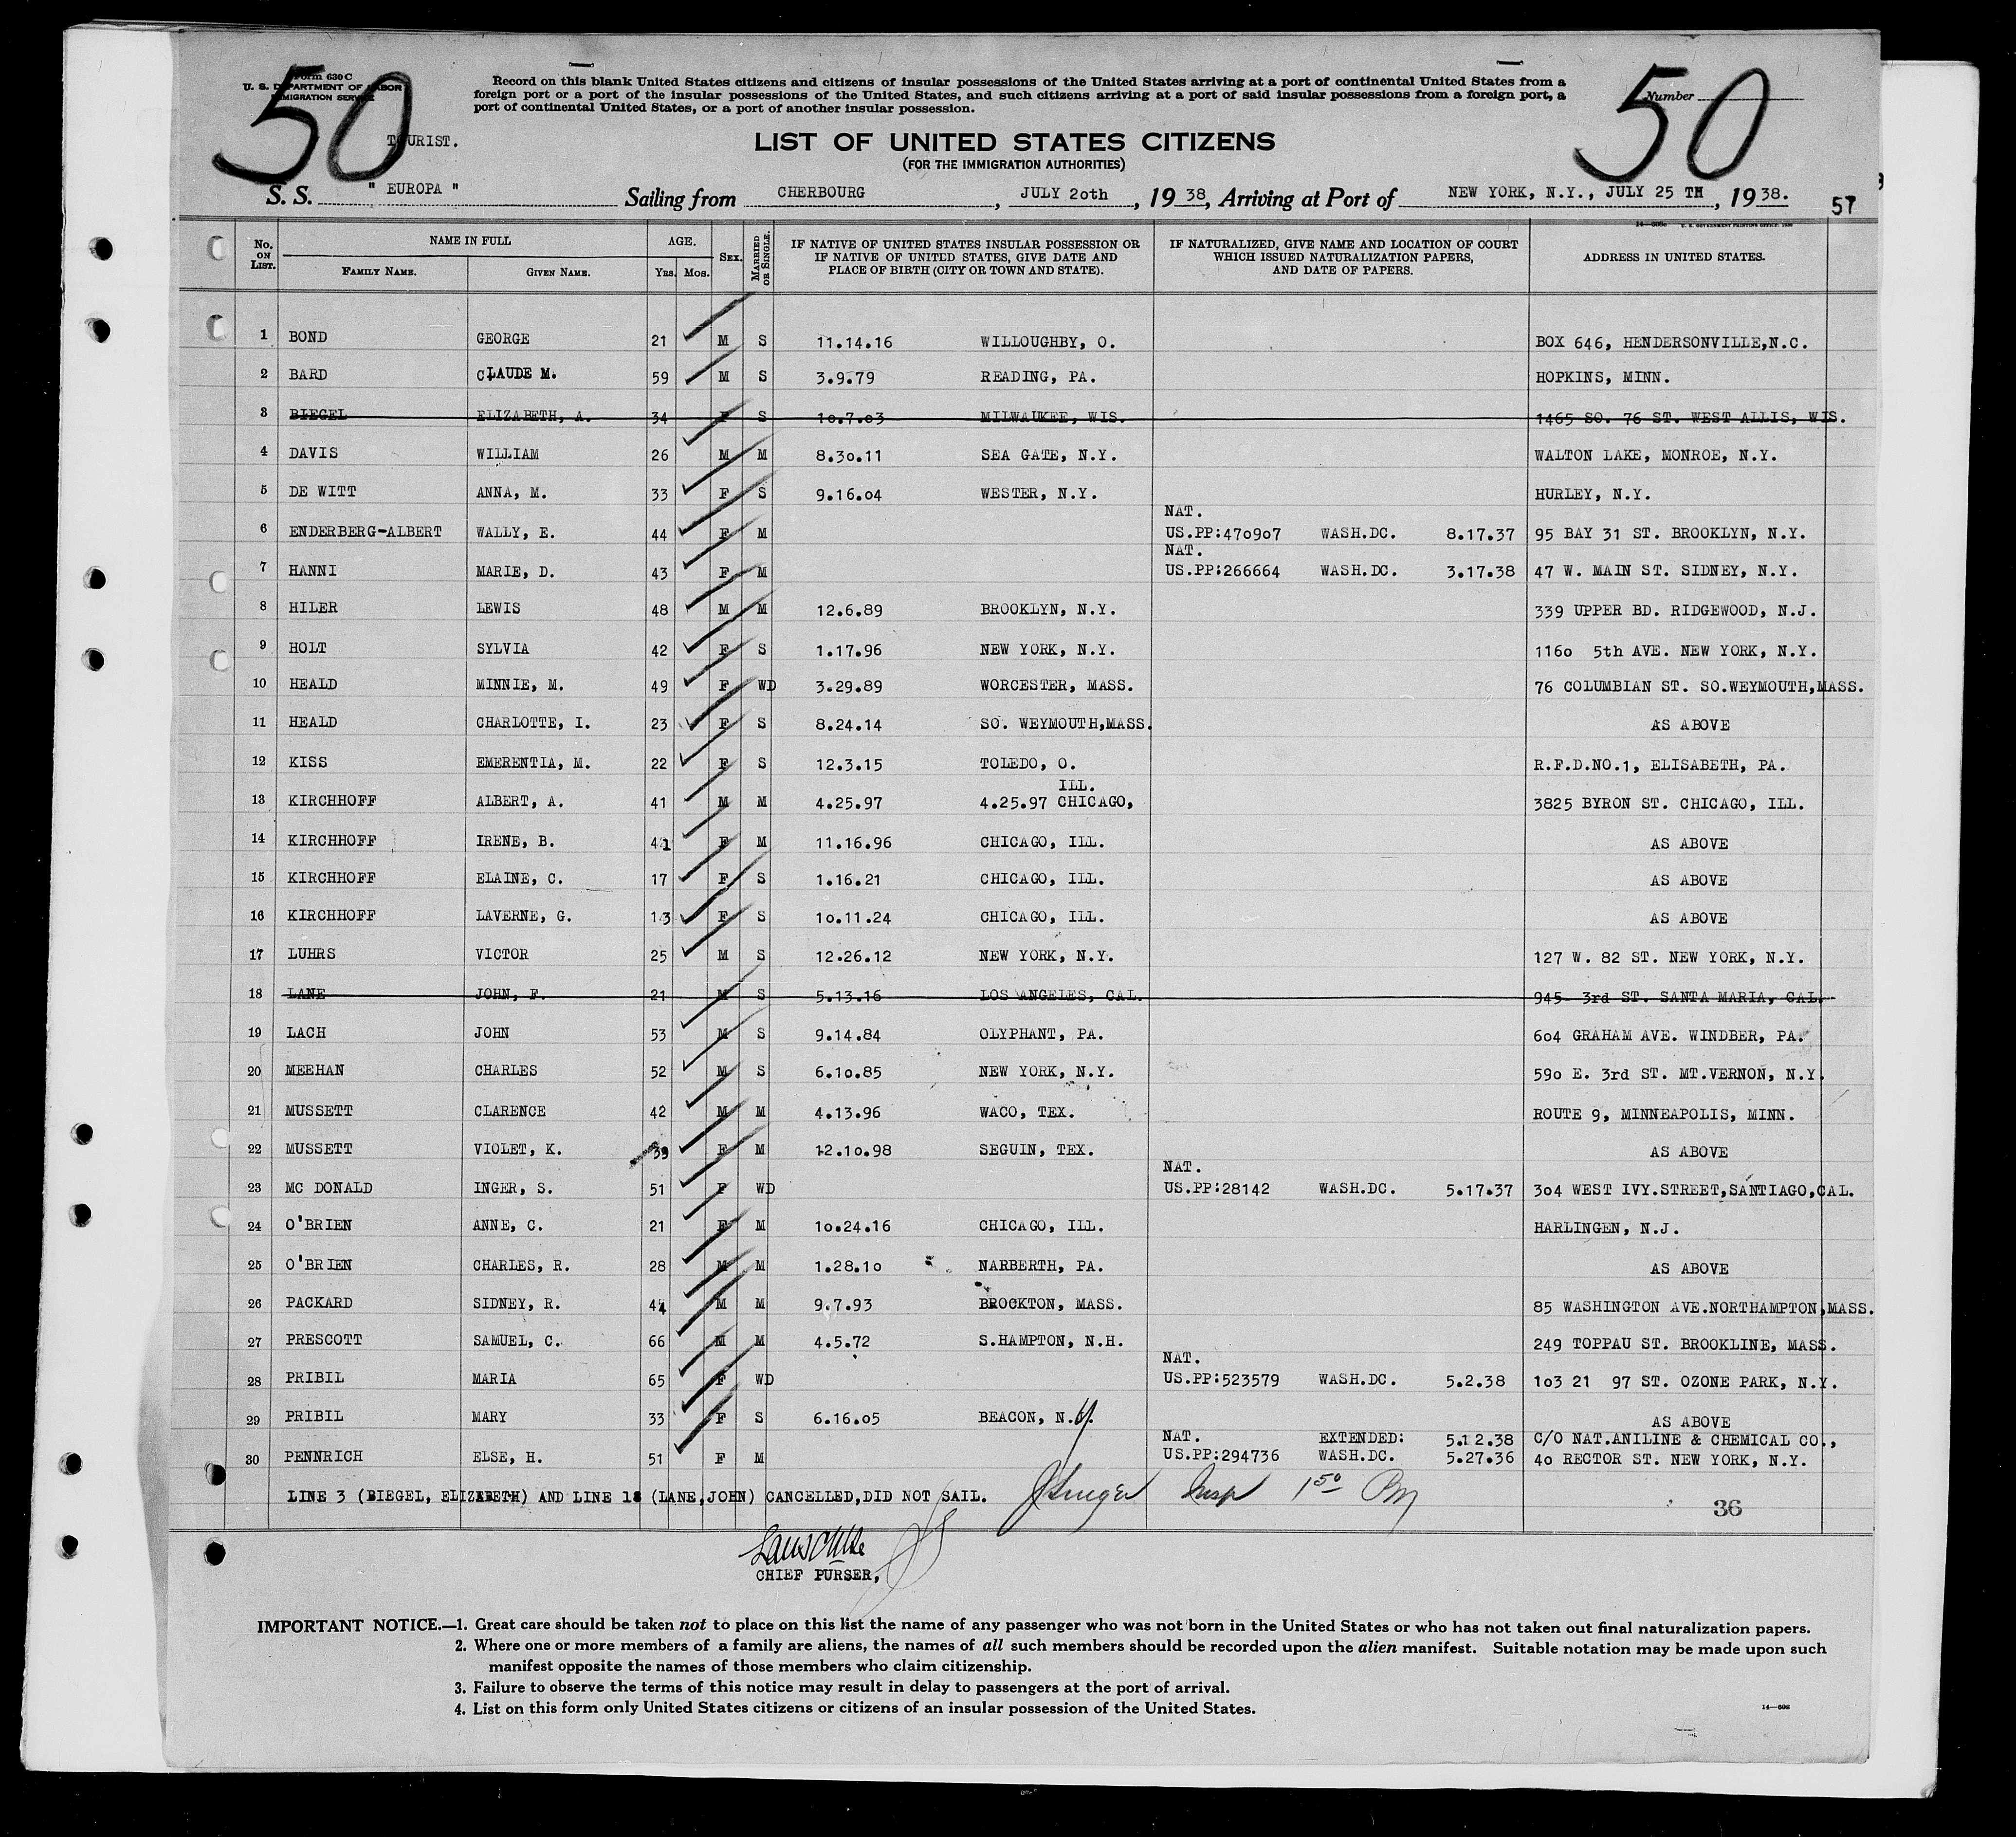 50
50
Form 630 C
U. S. DEPARTMENT OF LABOR
IMMIGRATION SERVICE
Record on this blank United States citizens and citizens of insular possessions of the United States arriving at a port of continental United States from a
foreign port or a port of the insular possessions of the United States, and such citizens arriving at a port of said insular possessions from a foreign port, a
port of continental United States, or a port of another insular possession.
Number
TOURIST.
LIST OF UNITED STATES CITIZENS
(FOR THE IMMIGRATION AUTHORITIES)
S. S. " EUROPA " Sailing from CHERBOURG, JULY 20th, 1938, Arriving at Port of NEW YORK, N.Y., JULY 25 TH, 1938.
57
No. ON LIST. NAME IN FULL FAMILY NAME. GIVEN NAME. AGE. YRS. MOS. SEX. MARRIED OR SINGLE. IF NATIVE OF UNITED STATES INSULAR POSSESSION OR IF NATIVE OF UNITED STATES, GIVE DATE AND PLACE OF BIRTH (CITY OR TOWN AND STATE). IF NATURALIZED, GIVE NAME AND LOCATION OF COURT WHICH ISSUED NATURALIZATION PAPERS, AND DATE OF PAPERS. ADDRESS IN UNITED STATES.
1 BOND GEORGE 21 M S 11.14.16 WILLOUGHBY, O. BOX 646, HENDERSONVILLE,N.C.
2 BARD CLAUDE M. 59 M S 3.9.79 READING, PA. HOPKINS, MINN.
3 BIEGEL ELIZABETH, A. 34 F S 10.7.03 MILWAUKEE, WIS. 1465 SO. 76 ST. WEST ALLIS, WIS.
4 DAVIS WILLIAM 26 M M 8.30.11 SEA GATE, N.Y. WALTON LAKE, MONROE, N.Y.
5 DE WITT ANNA, M. 33 F S 9.16.04 WESTER, N.Y. HURLEY, N.Y.
NAT.
6 ENDERBERG-ALBERT WALLY, E. 44 F M US.PP:470907 WASH.DC. 8.17.37 95 BAY 31 ST. BROOKLYN, N.Y.
NAT.
7 HANNI MARIE, D. 43 F M US.PP:266664 WASH.DC. 3.17.38 47 W. MAIN ST. SIDNEY, N.Y.
8 HILER LEWIS 48 M M 12.6.89 BROOKLYN, N.Y. 339 UPPER BD. RIDGEWOOD, N.J.
9 HOLT SYLVIA 42 F S 1.17.96 NEW YORK, N.Y. 1160 5th AVE. NEW YORK, N.Y.
10 HEALD MINNIE, M. 49 F WD 3.29.89 WORCESTER, MASS. 76 COLUMBIAN ST. SO.WEYMOUTH,MASS.
11 HEALD CHARLOTTE, I. 23 F S 8.24.14 SO. WEYMOUTH,MASS. AS ABOVE
12 KISS EMERENTIA, M. 22 F S 12.3.15 TOLEDO, O. R.F.D.NO.1, ELISABETH, PA.
ILL.
13 KIRCHHOFF ALBERT, A. 41 M M 4.25.97 4.25.97 CHICAGO, 3825 BYRON ST. CHICAGO, ILL.
14 KIRCHHOFF IRENE, B. 41 F M 11.16.96 CHICAGO, ILL. AS ABOVE
15 KIRCHHOFF ELAINE, C. 17 F S 1.16.21 CHICAGO, ILL. AS ABOVE
16 KIRCHHOFF LAVERNE, G. 13 F S 10.11.24 CHICAGO, ILL. AS ABOVE
17 LUHRS VICTOR 25 M S 12.26.12 NEW YORK, N.Y. 127 W. 82 ST. NEW YORK, N.Y.
18 LANE JOHN, F. 21 M S 5.13.16 LOS ANGELES, CAL. 945 3rd ST. SANTA MARIA, CAL.
19 LACH JOHN 53 M S 9.14.84 OLYPHANT, PA. 604 GRAHAM AVE. WINDBER, PA.
20 MEEHAN CHARLES 52 M S 6.10.85 NEW YORK, N.Y. 590 E. 3rd ST. MT.VERNON, N.Y.
21 MUSSETT CLARENCE 42 M M 4.13.96 WACO, TEX. ROUTE 9, MINNEAPOLIS, MINN.
22 MUSSETT VIOLET, K. 39 F M 12.10.98 SEGUIN, TEX. AS ABOVE
NAT.
23 MC DONALD INGER, S. 51 F WD US.PP:28142 WASH.DC. 5.17.37 304 WEST IVY.STREET,SANTIAGO,CAL.
24 O'BRIEN ANNE, C. 21 F M 10.24.16 CHICAGO, ILL. HARLINGEN, N.J.
25 O'BRIEN CHARLES, R. 28 M M 1.28.10 NARBERTH, PA. AS ABOVE
26 PACKARD SIDNEY, R. 44 M M 9.7.93 BROCKTON, MASS. 85 WASHINGTON AVE.NORTHAMPTON,MASS.
27 PRESCOTT SAMUEL, C. 66 M M 4.5.72 S.HAMPTON, N.H. 249 TOPPAU ST. BROOKLINE, MASS.
NAT.
28 PRIBIL MARIA 65 F WD US.PP:523579 WASH.DC. 5.2.38 103 21 97 ST. OZONE PARK, N.Y.
29 PRIBIL MARY 33 F S 6.16.05 BEACON, N.Y. AS ABOVE
NAT. EXTENDED: 5.12.38 C/O NAT.ANILINE & CHEMICAL CO.,
30 PENNRICH ELSE, H. 51 F M US.PP:294736 WASH.DC. 5.27.36 40 RECTOR ST. NEW YORK, N.Y.
LINE 3 (BIEGEL, ELIZABETH) AND LINE 18 (LANE,JOHN) CANCELLED,DID NOT SAIL. Insp 1 50 PM
36
CHIEF PURSER,
IMPORTANT NOTICE.—1. Great care should be taken not to place on this list the name of any passenger who was not born in the United States or who has not taken out final naturalization papers.
2. Where one or more members of a family are aliens, the names of all such members should be recorded upon the alien manifest. Suitable notation may be made upon such
manifest opposite the names of those members who claim citizenship.
3. Failure to observe the terms of this notice may result in delay to passengers at the port of arrival.
4. List on this form only United States citizens or citizens of an insular possession of the United States.